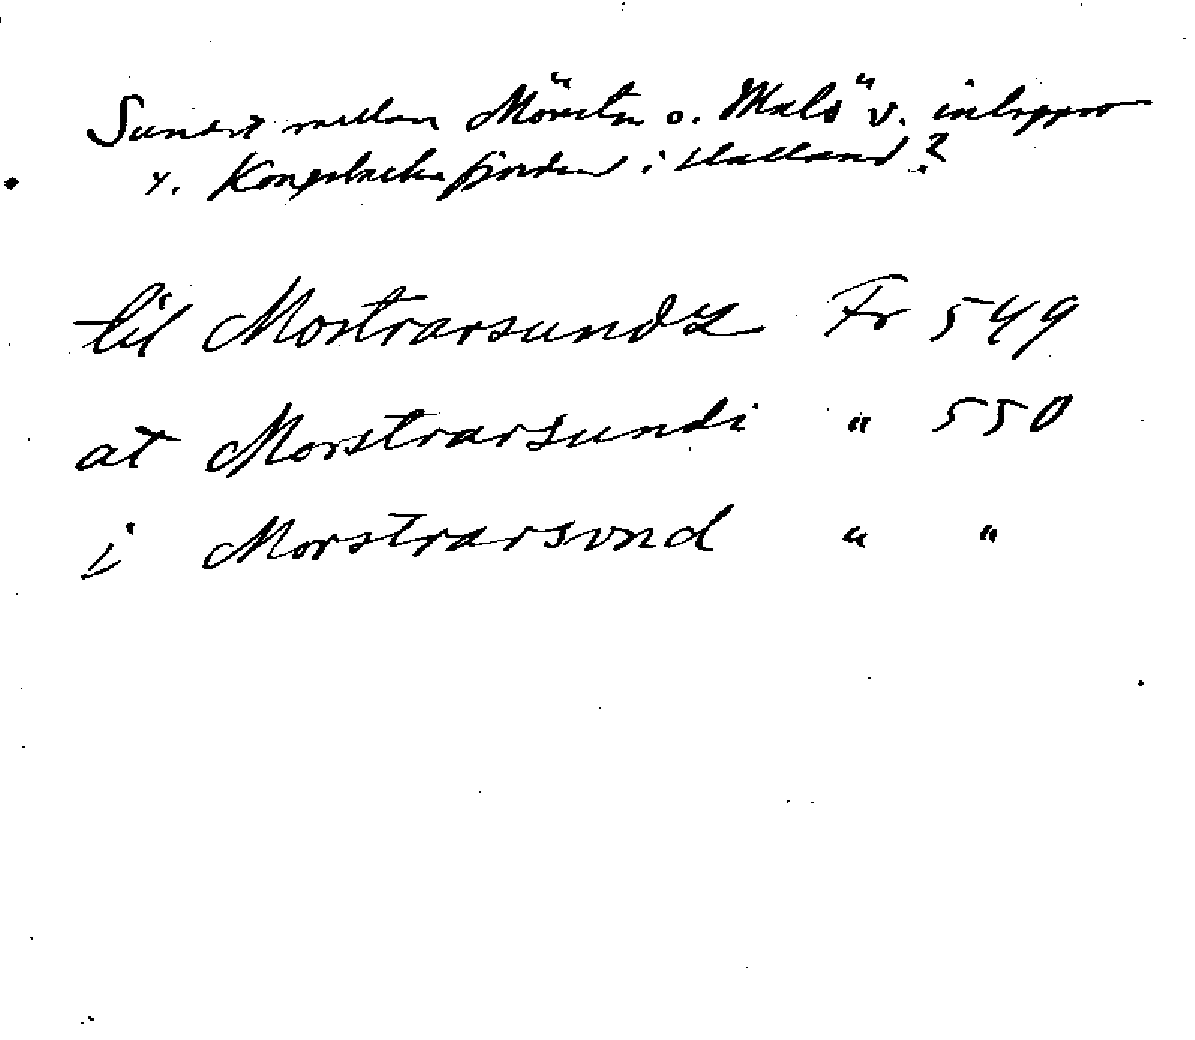 Sundet mellan Mönster o. Malö v. inloppet
t. Kongsbackafjorden i Halland?
til Mostrarsundz Fr 549
at Morstrarsundi " 550
i Morstrarsvnd " "